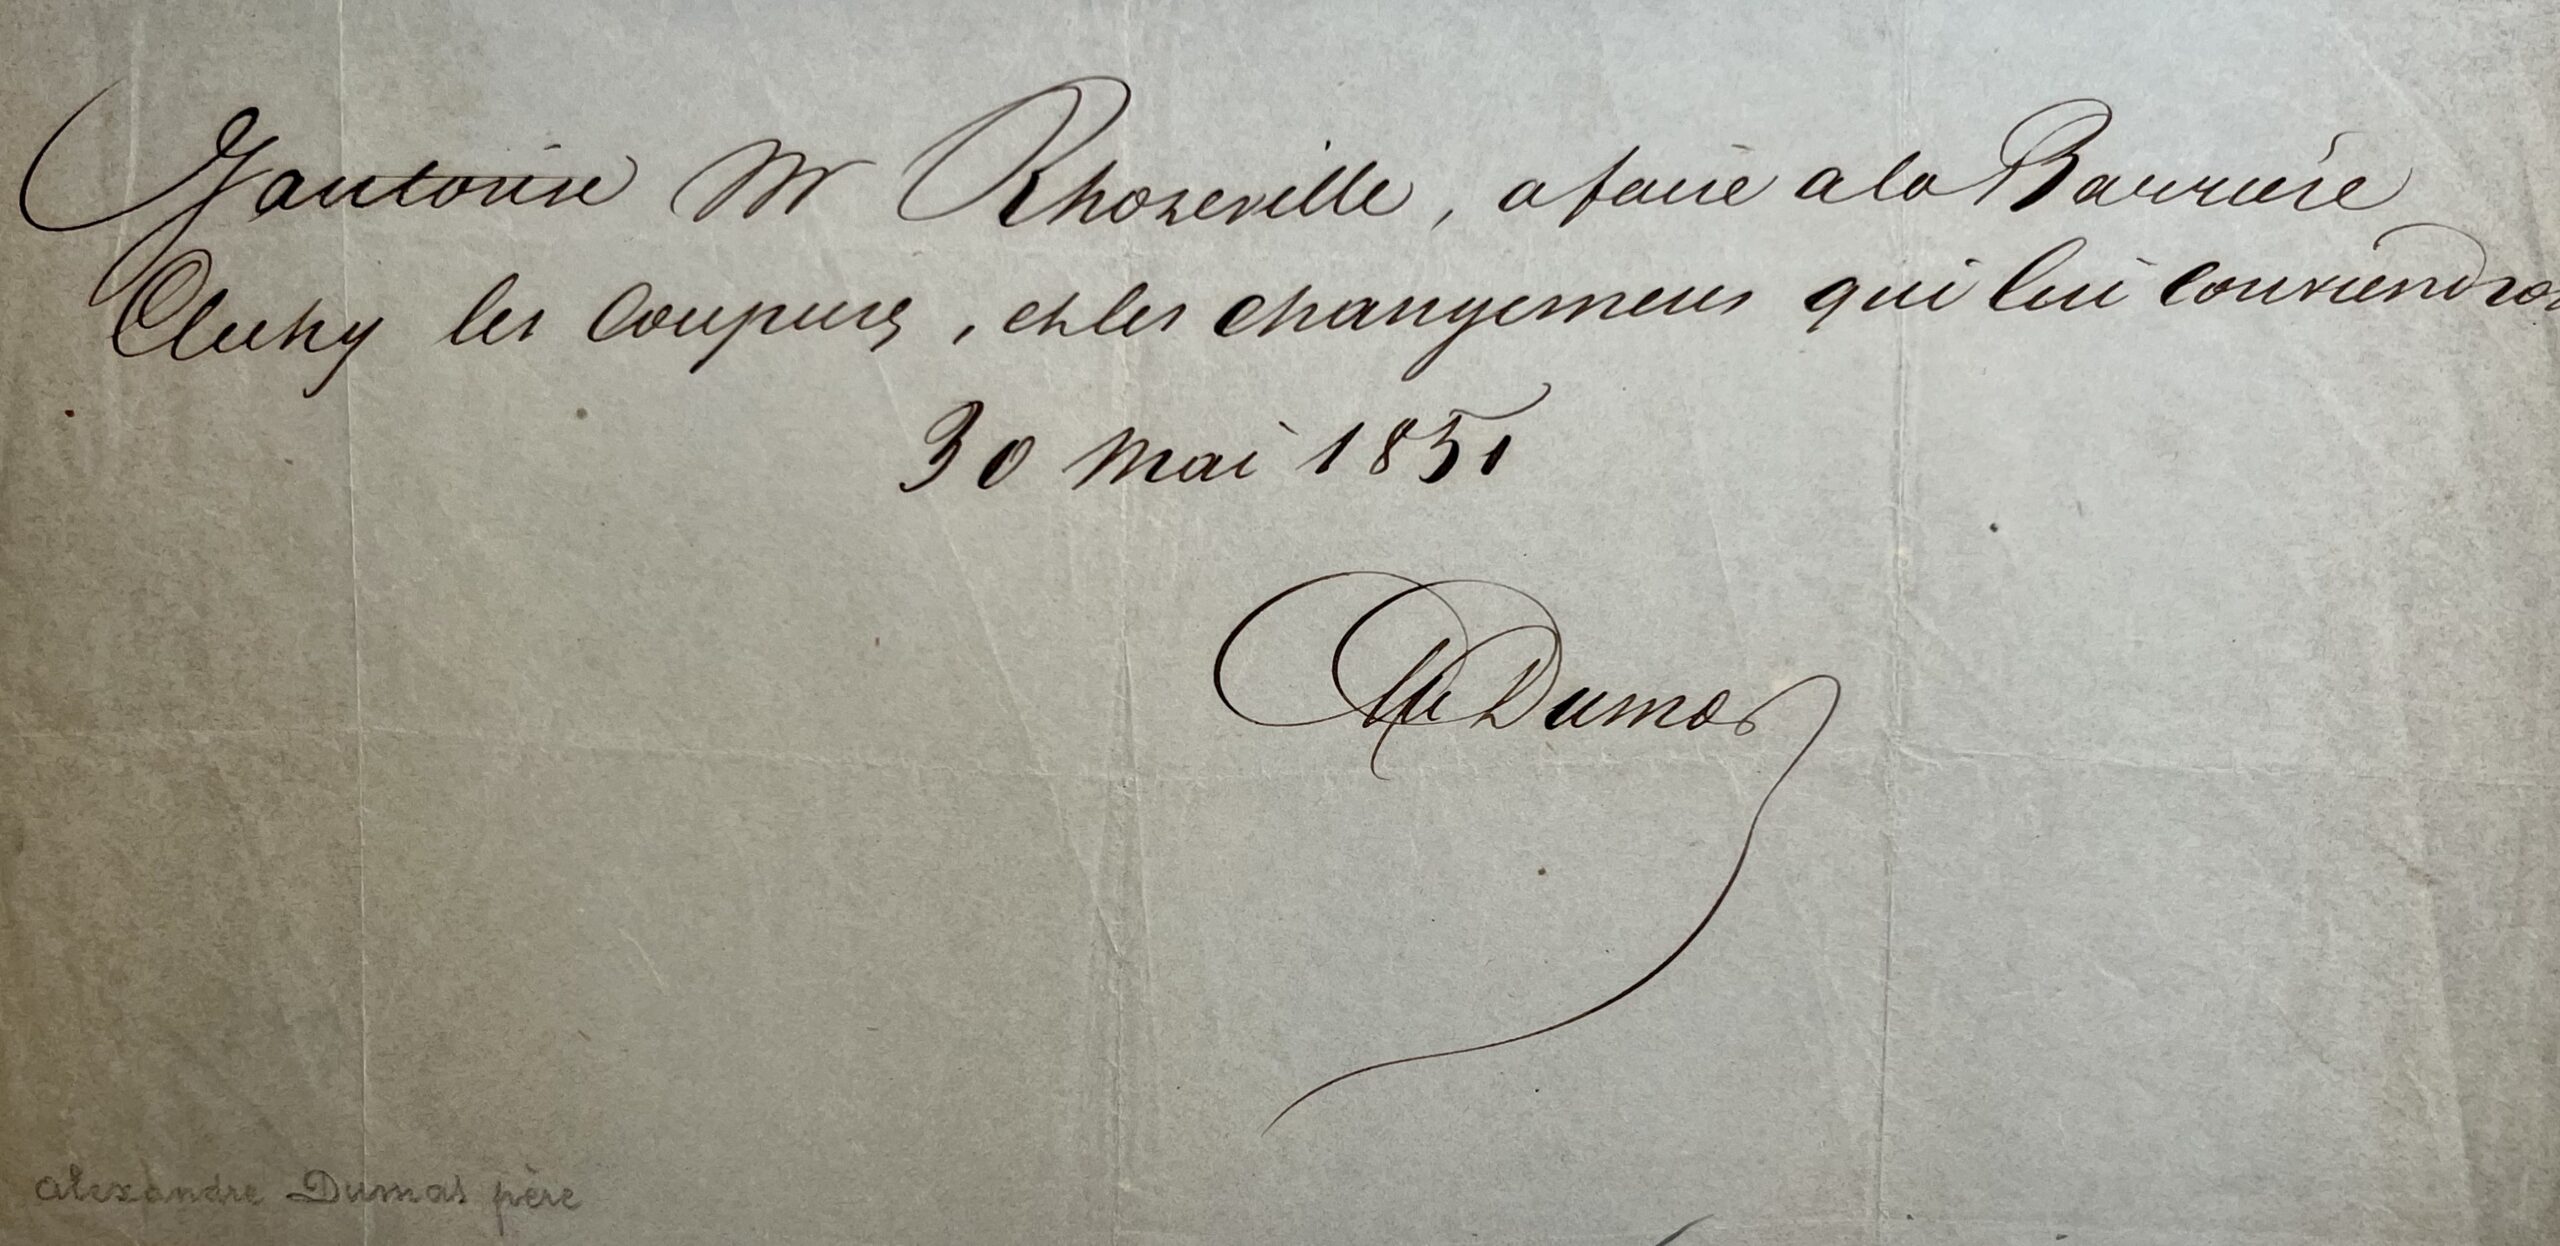 J'autorise Mr Rhozeville, a faire a la Barriere
Clichy les coupures, et les changemens qui lui conviendron
30 Mai 1851
Alex Dumas
alexandre Dumas père